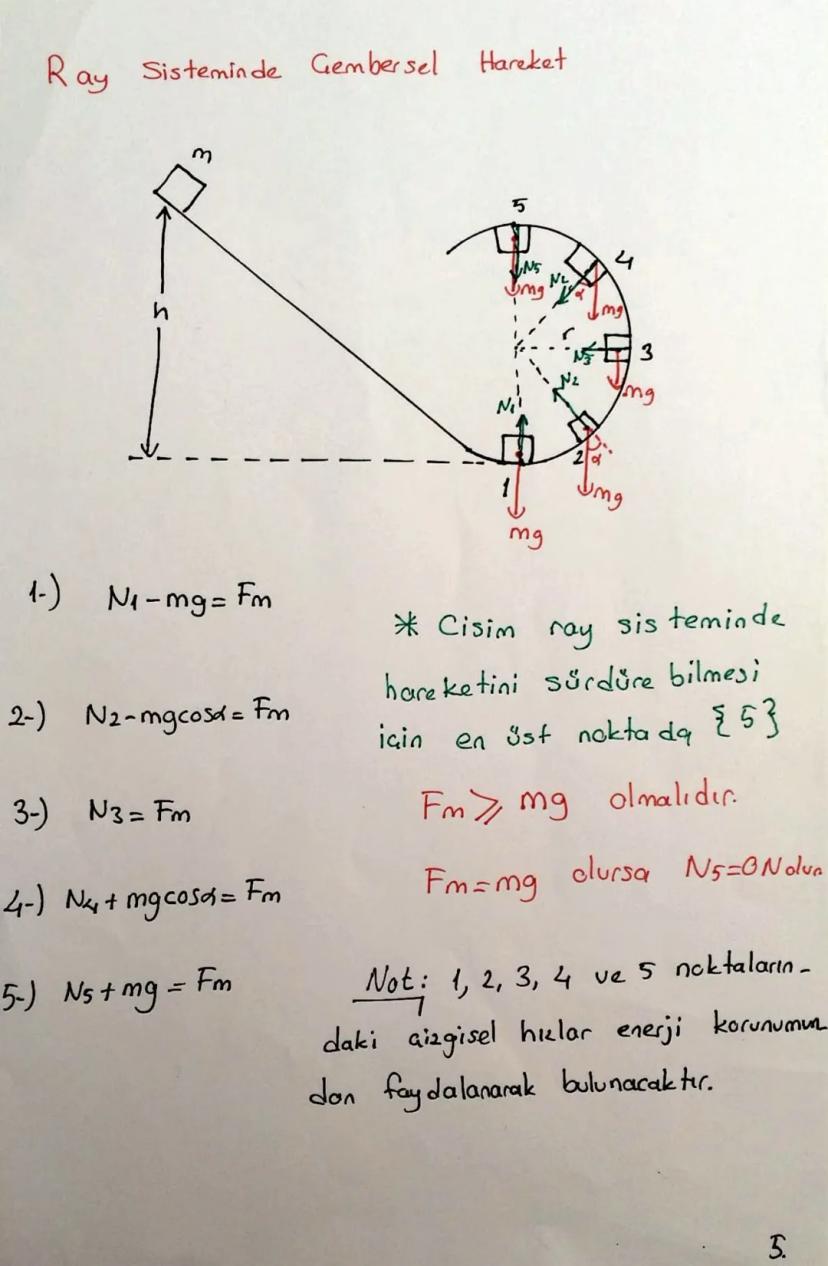 Ray Sisteminde Çembersel Hareket
m
h
5
N5
mg
4
mg
α
r
N3
3
mg
N2
N1
2
α
mg
1
mg
1-) N1 - mg = Fm
2-) N2 - mgcosα = Fm
3-) N3 = Fm
4-) N4 + mgcosα = Fm
5-) N5 + mg = Fm
* Cisim ray sisteminde
hareketini sürdüre bilmesi
için en üst noktada {5}
Fm ⩾ mg olmalıdır.
Fm = mg olursa N5=0N olur
Not: 1, 2, 3, 4 ve 5 noktaların-
daki çizgisel hızlar enerji korunumun
dan faydalanarak bulunacaktır.
5.